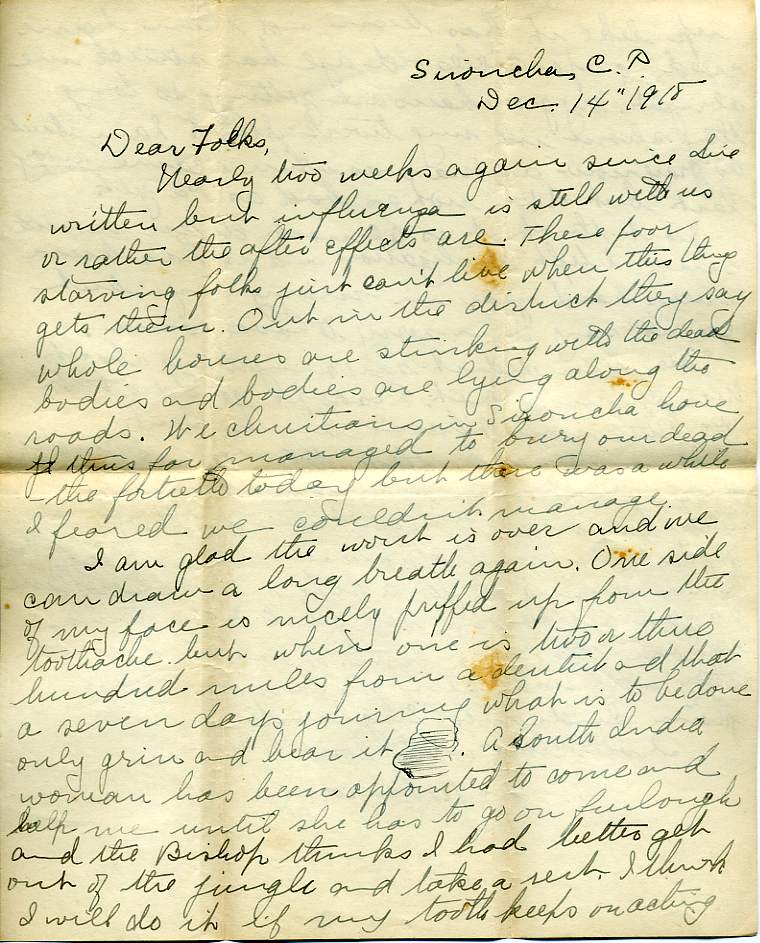 Sironcha, C. P.
Dec. 14" 1918
Dear Folks,
Nearly two weeks again since I've
written but influenza is still with us
or rather the after effects are. These poor
starving folks just can't live when this thing
gets them. Out in the district they say
whole houses are stinking with the dead
bodies and bodies are lying along the
roads. We christians in Sironcha have
thus far managed to bury our dead
- the fortieth today but there was a while
I feared we couldn't manage.
I am glad the worst is over and we
can draw a long breath again. One side
of my face is nicely puffed up from the
toothache. but when one is two or three
hundred miles from a dentist and that
a seven days journey what is to be done
only grin and bear it. A South India
woman has been appointed to come and
help me until she has to go on furlough
and the Bishop thinks I had better get
out of the jungle and take a rest. I think
I will do it if my tooth keeps on aching